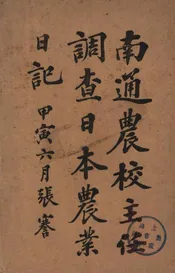 南通農校主任
調查日本農業
日記 甲寅六月張謇